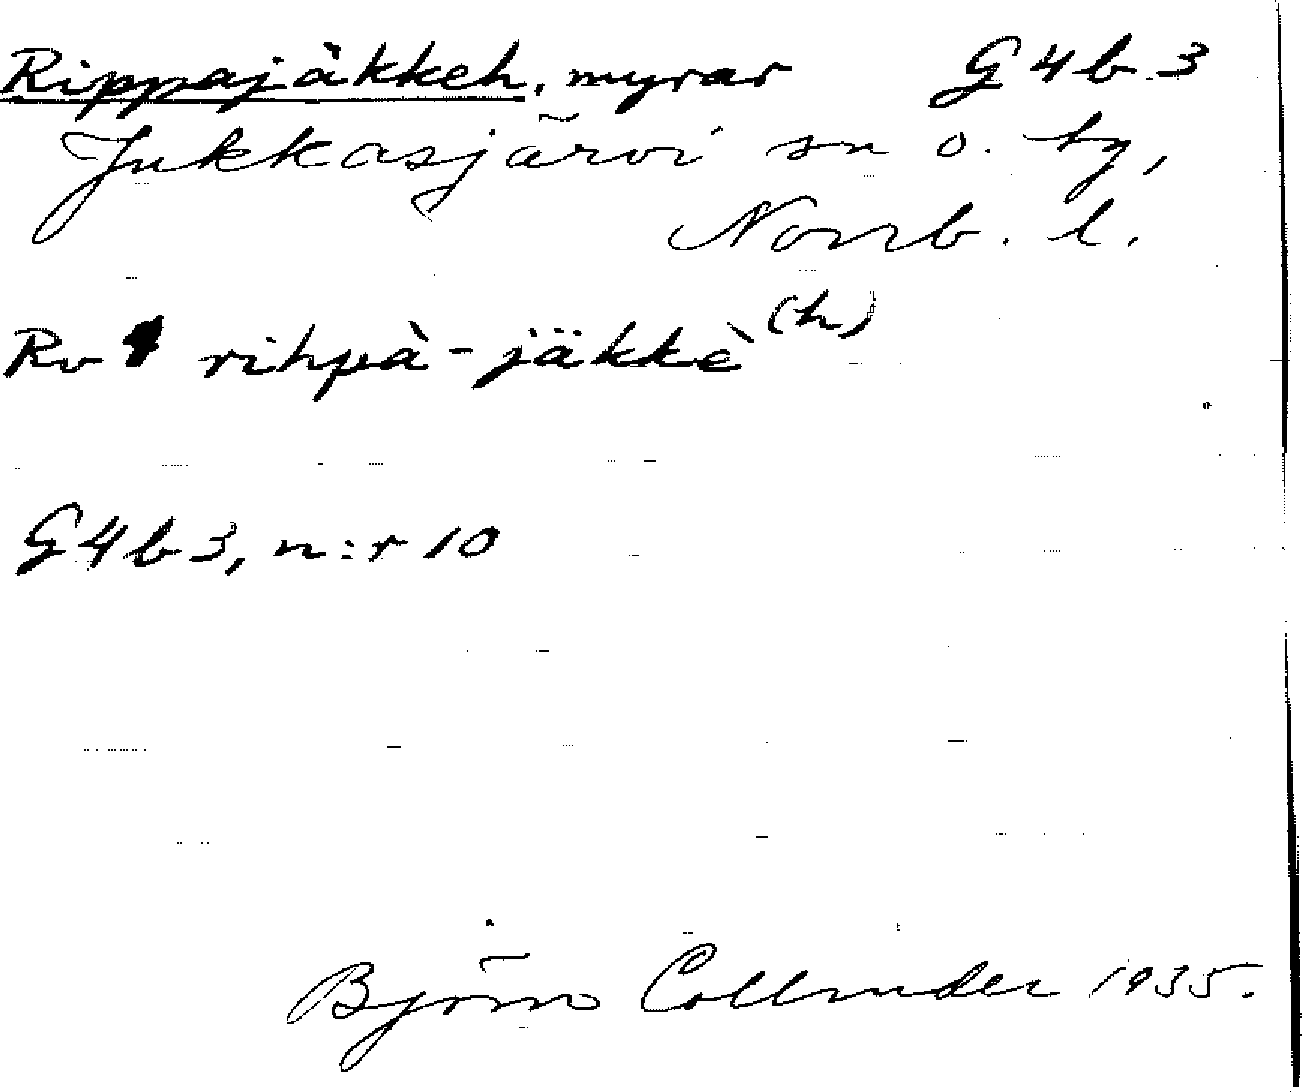 Rippajåkkeh, myrar G4b3
Jukkasjärvi sn o. by,
Norrb. l.
Rv rihpà-jäkkè(h)
G4b3, n:r 10
Björn Collinder 1935.